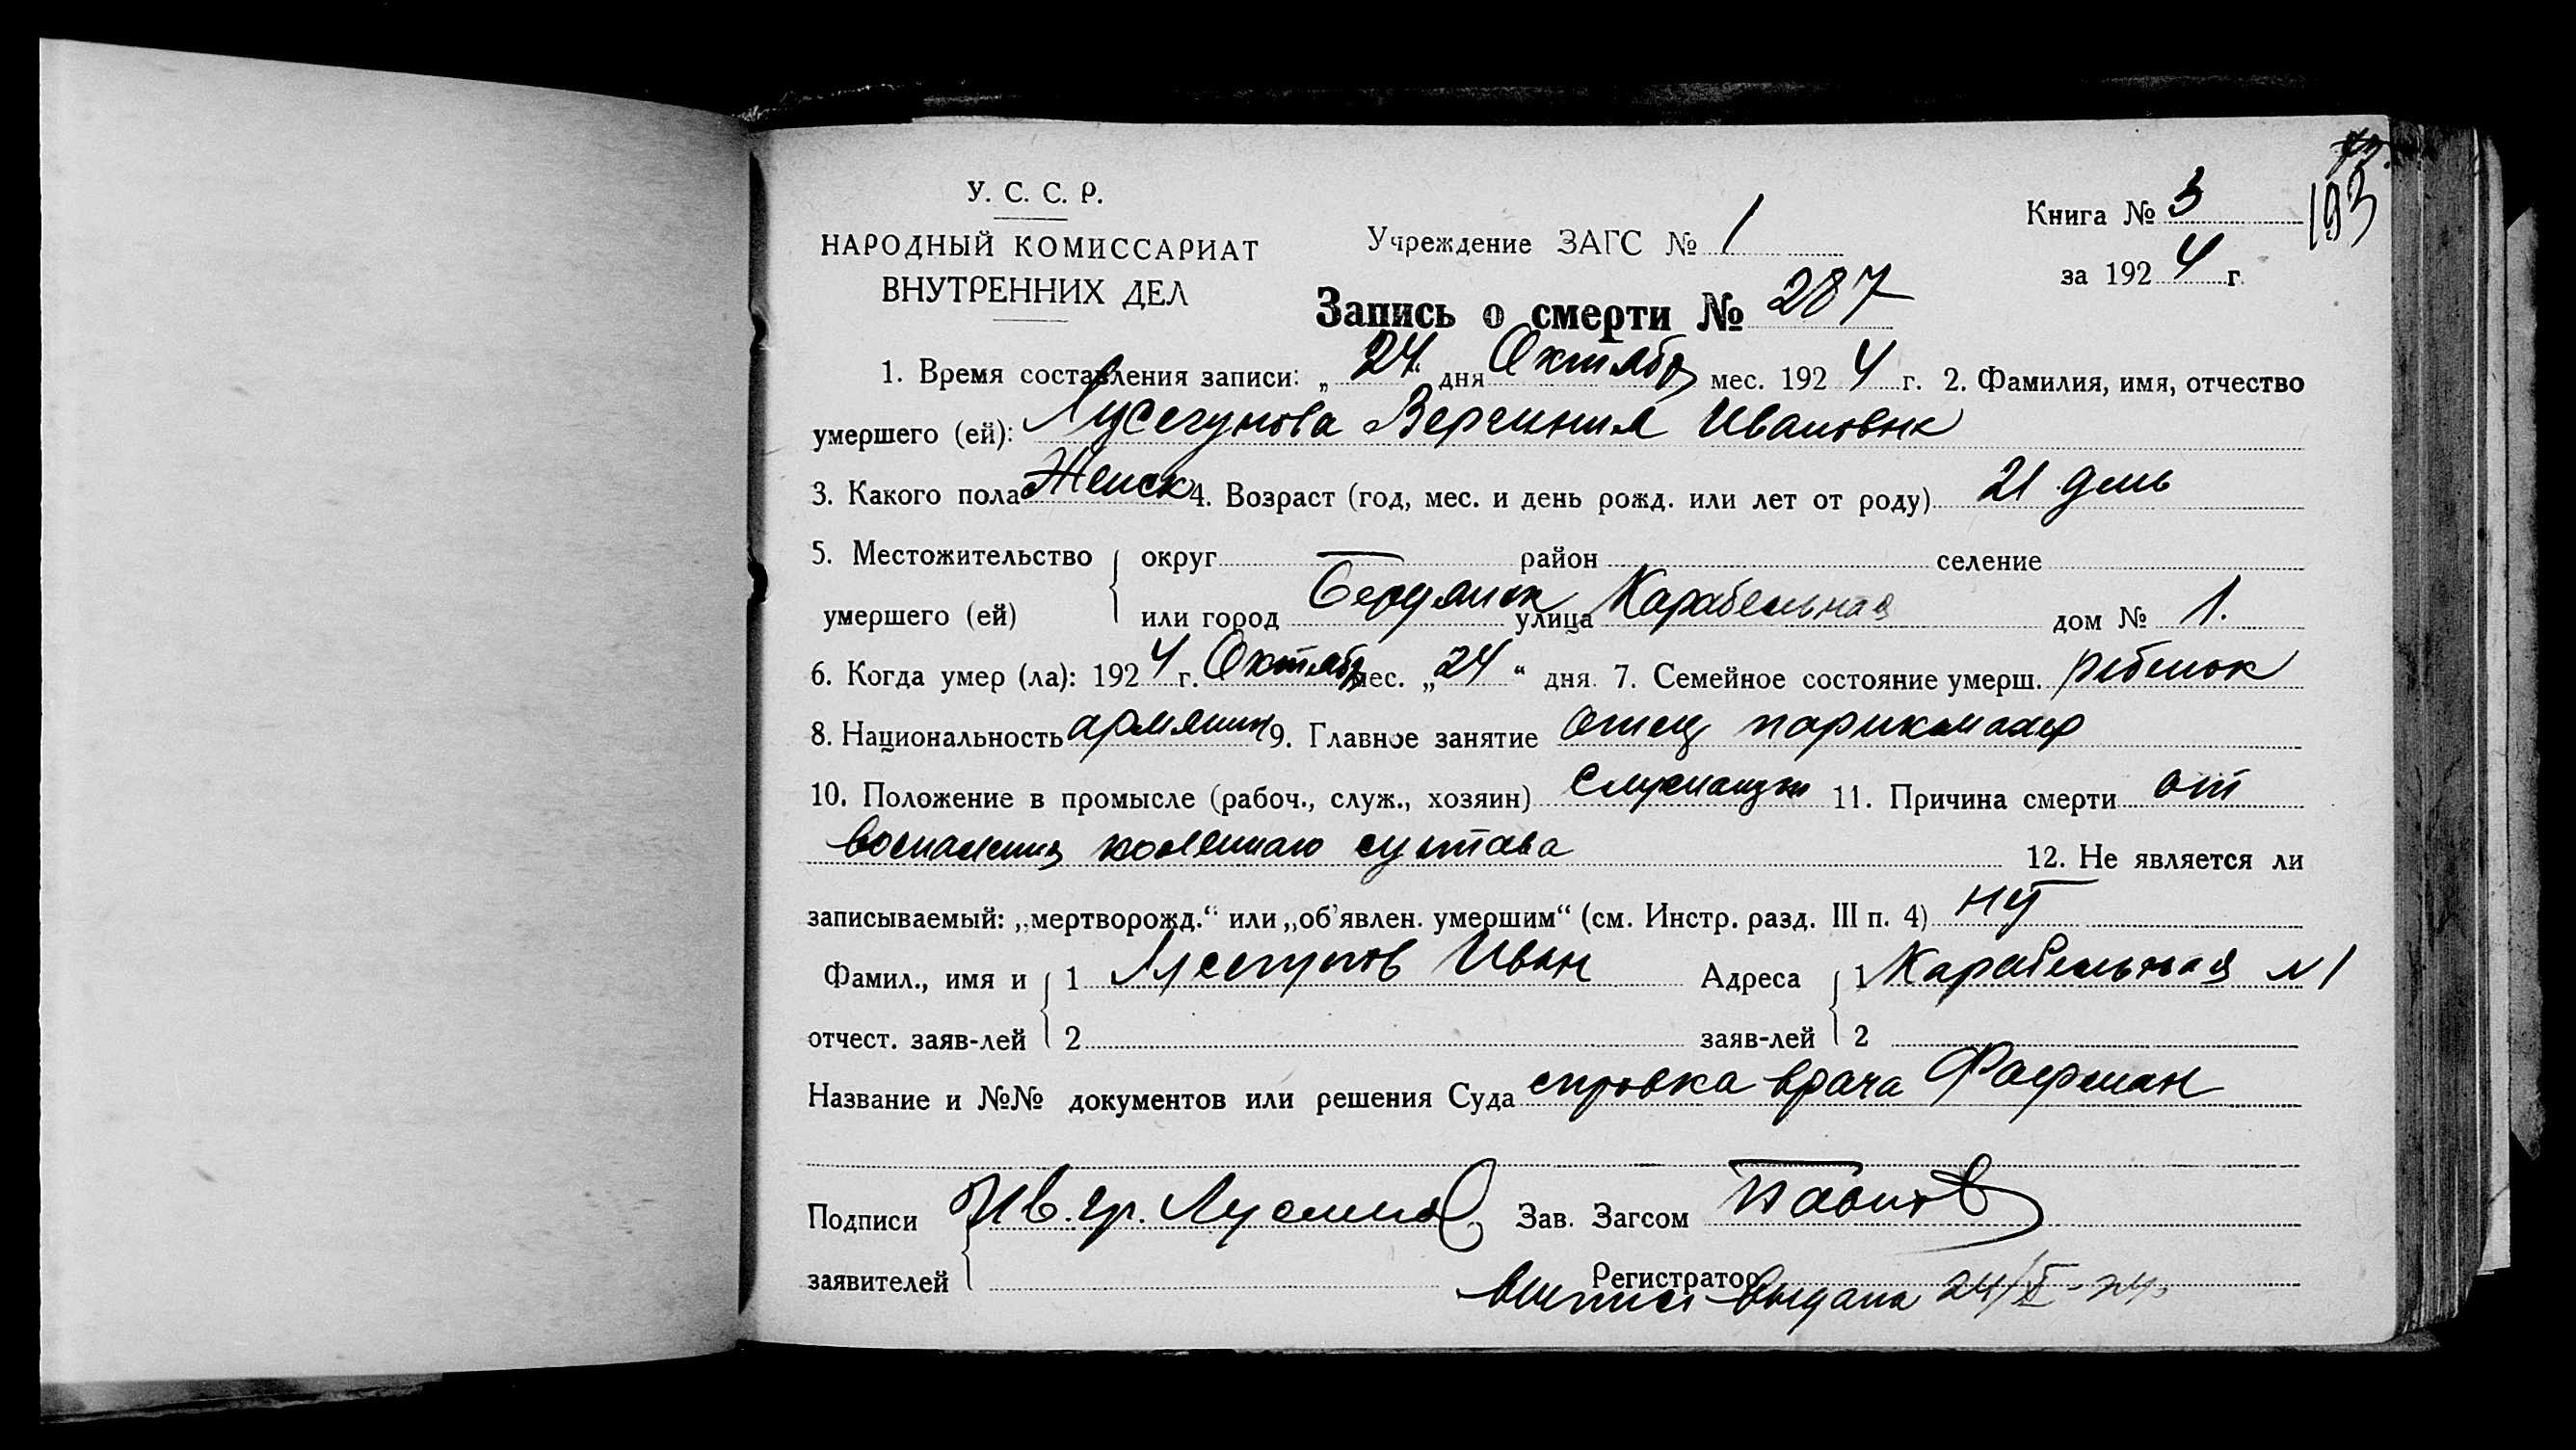 193
У. С. С. Р.
НАРОДНЫЙ КОМИССАРИАТ
ВНУТРЕННИХ ДЕЛ
Учреждение ЗАГС № 1
Книга № 3
за 1924 г.
Запись о смерти № 287
1. Время составления записи: „ 24 дня Октября мес. 1924 г. 2. Фамилия, имя, отчество
умершего (ей): Лусегунова Вергиния Ивановнк
3. Какого пола Женск 4. Возраст (год, мес. и день рожд. или лет от роду) 21 день
5. Местожительство округ район селение
умершего (ей) или город Бердянск улица Карабельная дом № 1.
6. Когда умер (ла): 1924 г. Октября мес. „24“ дня. 7. Семейное состояние умерш. ребенок
8. Национальность армянин 9. Главное занятие отец парикмахер
10. Положение в промысле (рабоч., служ., хозяин) Служащий 11. Причина смерти от
воспаления коленнаго сустава 12. Не является ли
записываемый: „мертворожд.“ или „об'явлен. умершим“ (см. Инстр. разд. III п. 4) нет
Фамил., имя и 1 Лусегунов Иван Адреса 1 Карабельная N 1
отчест. заяв-лей 2 заяв-лей 2
Название и №№ документов или решения Суда справка врача
Подписи Ив. гр. Зав. Загсом
заявителей Регистратор
выпись выдана 24/X-24